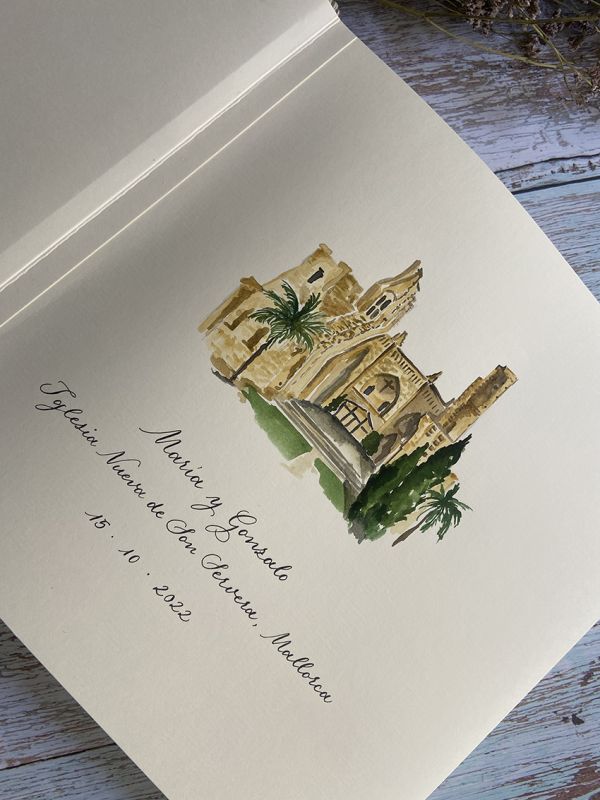 María y Gonzalo
Iglesia Nueva de Son Servera, Mallorca
15 . 10 . 2022